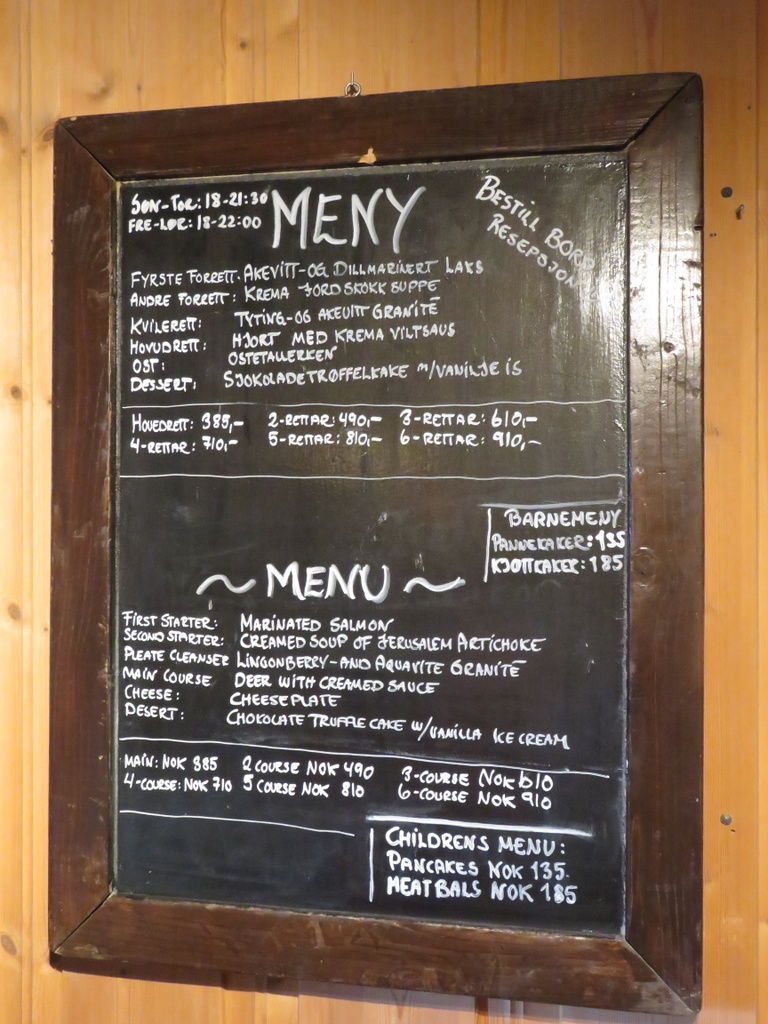 SØN-TOR: 18-21:30
FRE-LØR: 18-22:00
MENY
BESTILL BORD
RESEPSJON
FYRSTE FORRETT: AKEVITT-OG DILLMARINERT LAKS
ANDRE FORRETT: KREMA JORDSKOKK SUPPE
KVILERETT: TYTING-OG AKEVITT GRANITÉ
HOVUDRETT: HJORT MED KREMA VILTSAUS
OST: OSTETALLERKEN
DESSERT: SJOKOLADETRØFFELKAKE M/VANILJE IS
HOVEDRETT: 385,- 2-RETTAR: 490,- 3-RETTAR: 610,-
4-RETTAR: 710,- 5-RETTAR: 810,- 6-RETTAR: 910,-
BARNEMENY
PANNEKAKER: 135
KJØTTKAKER: 185
~ MENU ~
FIRST STARTER: MARINATED SALMON
SECOND STARTER: CREAMED SOUP OF JERUSALEM ARTICHOKE
PLEATE CLEANSER LINGONBERRY-AND AQUAVITE GRANITÉ
MAIN COURSE DEER WITH CREAMED SAUCE
CHEESE: CHEESEPLATE
DESERT: CHOKOLATE TRUFFLE CAKE W/VANILLA ICE CREAM
MAIN: NOK 385 2 COURSE NOK 490 3-COURSE NOK 610
4-COURSE: NOK 710 5 COURSE NOK 810 6-COURSE NOK 910
CHILDRENS MENU:
PANCAKES NOK 135
MEATBALS NOK 185